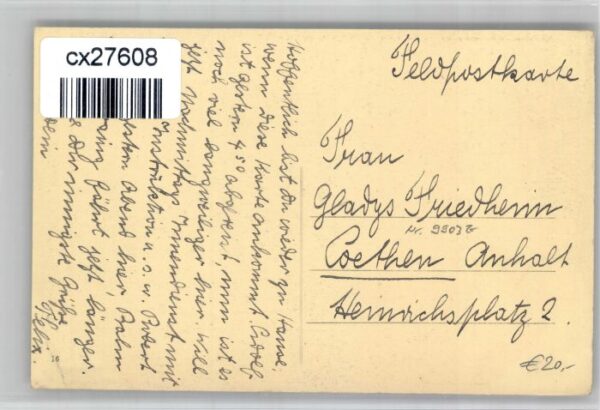 cx27608
Feldpostkarte
Frau
Gladys Friedheim
Nr. 9903 B
Coethen Anhalt
Heinrichsplatz 2.
Hoffentlich bist du wieder zu Hause,
wenn diese Karte ankommt. Adolf
ist gestern 4 50 abgereist, nun ist es
noch viel langweiliger hier. Will
jetzt Nachmittags Innendienst mit
Instruktion u. s. w. Robert
Abend hier, Bahn
fährt jetzt länger.
Dir innigste Grüße
Dein
Felix.
16
€20,-